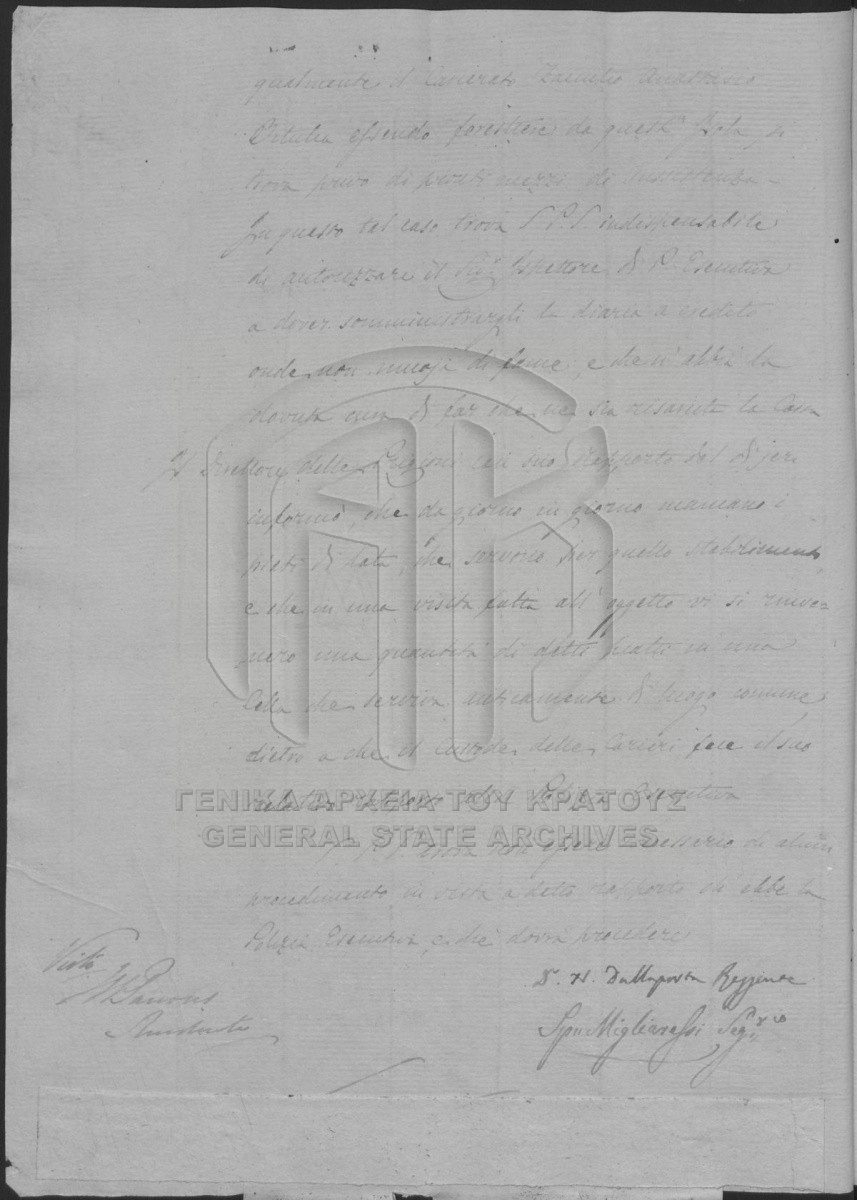 qualmente il Carcerato Anastasio
essendo forestiere da quest' Isola, si
trova privo di pronti mezzi di sussistenza –
In questo tal caso trova S. P. S. indispensabile
di autorizzare il Sigr. Ispettore di P. Esecutiva
a dover somministrargli la diaria a credito
onde non muoja di fame, e che n' abbia la
dovuta cura di far che ne sia risarcita la Cassa
Il Direttore delle Prigioni con suo Rapporto del di jeri
informò, che da giorno in giorno mancano i
piati di lata, che servono per quello stabilimento,
e che in una visita fatta all' oggetto vi si rinve=
nero una quantità di detti piatti in una
Cella che serviva anticamente di luogo comune
dietro a che il custode delle Carceri fece il suo
Rapporto alla Polizia Esecutiva
S. P. S. trova non esser necessario di alcun
procedimento in vista a detto rapporto ch' ebbe la
Polizia Esecutiva, e che dovrà procedere
Visto
D. N. Dallaporta Reggente
Spir. Migliaressi Segrio
ΓΕΝΙΚΑ ΑΡΧΕΙΑ ΤΟΥ ΚΡΑΤΟΥΣ
GENERAL STATE ARCHIVES